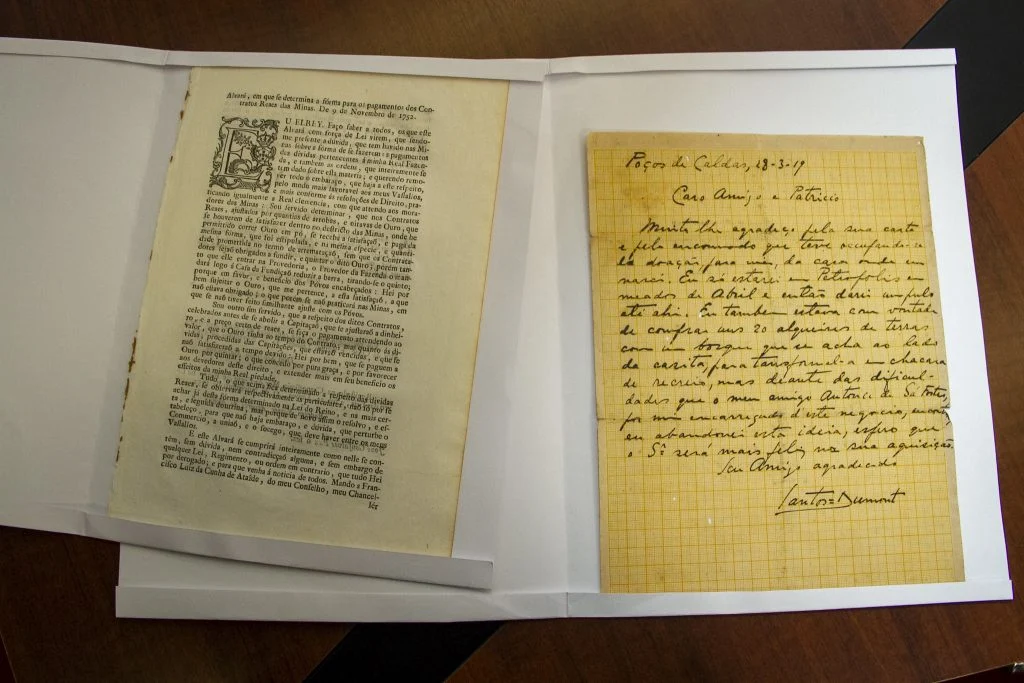 Alvará, em que se determina a fórma para os pagamentos dos Con-
tratos Reaes das Minas. De 9 de Novembro de 1752.
EU ELREY. Faço saber a todos, os que este
Alvará com força de Lei virem, que sendo-
me presente a dúvida, que tem havido nas Mi-
nas sobre a fórma de se fazerem os pagamentos
das dividas pertencentes á minha Real Fazen-
da, e tambem as ordens, que inteiramente se
tem dado sobre esta materia; e querendo remo-
ver todo o embaraço, que haja a este respeito,
pelo modo mais favoravel aos meus Vassallos,
e mais conforme ás resoluções de Direito, pra-
ticando igualmente a Real clemencia, com que attendo aos mora-
dores das Minas: Sou servido determinar, que nos Contratos
Reaes, ajustados por quantias de arrobas, e oitavas de Ouro, que
se houverem de satisfazer dentro no destricto das Minas, onde he
permittido correr Ouro em pó, se receba a satisfaçaõ, e pagueis
mesma fórma, que foi estipulada, e na mesma especie, e quanti-
dade promettida no termo de arrematação, sem que os Contrata-
dores sejaõ obrigados a fundir, e quintar o dito Ouro; porém tan-
to que elle entrar na Provedoria, o Provedor da Fazenda o man-
dará logo á Casa da Fundiçaõ reduzir a barra, tirando-se o quinto;
porque em favor, e beneficio dos Póvos encabeçados: Hei por
bem sujeitar o Ouro, que me pertence, a esta satisfaçaõ, a que
naõ estava obrigado; o que porém se naõ praticará nas Minas, em
que se naõ tiver feito similhante ajuste com os Póvos.
Sou outro sim servido, que a respeito dos ditos Contratos,
celebrados antes de se abolir a Capitaçaõ, que se ajustáraõ a dinhei-
ro, e a preço certo de reaes, se faça o pagamento attendendo ao
valor, que o Ouro tinha ao tempo do Contrato; mas quanto ás di-
vidas, procedidas das Capitações, que estavaõ vencidas, e que se
naõ satisfizeraõ a tempo devido: Hei por bem, que se paguem a
Ouro por quintar; o que concedo por pura graça, e por favorecer
aos devedores desse direito, e extender mais em seu beneficio os
effeitos da minha Real piedade.
Tudo, o que acima fica determinado a respeito das dividas
Reaes, se observará respectivamente as particulares, naõ só por se
achar já desta fórma determinado na Lei do Reino, e na mais cer-
ta, e seguida doutrina, mas porque de novo assim o resolvo, e es-
tabeleço, para que naõ haja embaraço, e duvida, que perturbe o
Commercio, a uniaõ, e o socego, que deve haver entre os meus
Vassallos.
E este Alvará se cumprirá inteiramente como nelle se con-
tém, sem dúvida, nem contradicçaõ alguma, e sem embargo de
qualquer Lei, Regimento, ou ordem em contrario, que tudo Hei
por derogado; e para que venha á noticia de todos. Mando a Fran-
cisco Luiz da Cunha de Ataíde, do meu Conselho, meu Chancel-
lér
Poços de Caldas, 28-3-19
Caro Amigo e Patricio
Muito lhe agradeço pela sua carta
e pelo encommodo que teve occupando-se
da doação, para mim, da casa onde eu
nasci. Eu só estarei em Petropolis em
meados de Abril e então darei um pulo
até ahi. Eu tambem estava com vontade
de comprar uns 20 alqueires de terras
com um bosque que se acha ao lado
da casita, para transformal-a em chacara
de recreio, mas deante das dificul-
dades que o meu amigo Antonio de Sá Fortes,
por mim encarregado d'este negocio, encontrou
eu abandonei esta ideia, espero que
o Sr. sera mais feliz na sua aquisição.
Seu Amigo agradecido
Santos=Dumont